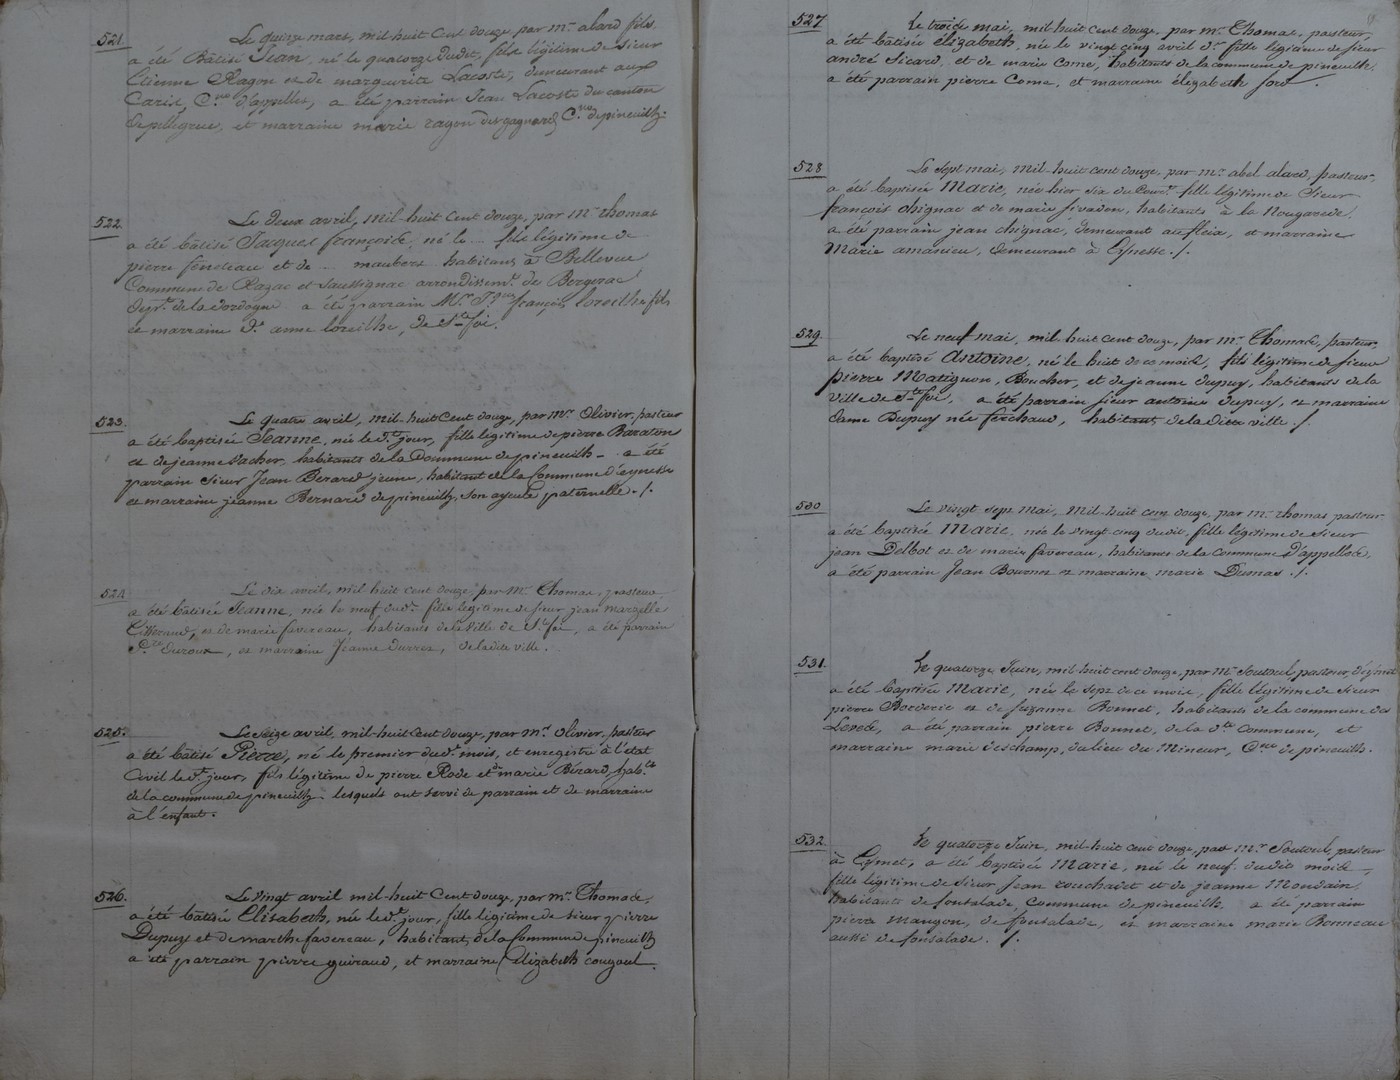 521. Le quinze mars, mil-huit Cent douze, par mr. alard fils,
a été Bâtisé Jean, né le quatorze dudit, fils légitime de Sieur
Etienne Ragon et de marguerite Lacoste, demeurant aux
Caris, Cne. d'appelles, a été parrain Jean Lacoste du canton
de pellegrue, et marraine marie ragon des gagnards Cne. de pineuilh.
522. Le deux avril, mil-huit Cent douze, par mr. thomas
a été bâtisé Jacques françois, né le ... fils légitime de
pierre feneteau et de ... maubert habitans à Bellevue
Commune de Razac et Saussignac arrondissemt. de Bergerac
deprt. de la dordogne a été parrain Mr. Jques françois loreilhe fils
et marraine de. anne loreilhe, de Ste. foi.
523. Le quatre avril, mil-huit Cent douze, par mr. Olivier, pasteur
a été baptisée Jeanne, née le dt. jour, fille légitime de pierre Baraton
et de jeanne Vacher, habitants de la Commune de pineuilh - a été
parrain Sieur Jean Berard jeune, habitant de la Commune d'eynesse
et marraine jeanne Bernard de pineuilh, son ayeule paternelle ./.
524. Le dix avril, mil-huit cent douze, par mr. Thomas, pasteur,
a été bâtisée Jeanne, née le neuf dudt. fille légitime de sieur jean marzelle
, et de marie favereau, habitants de la Ville de Ste. foi, a été parrain
 Duroux, et marraine Jeanne durret, de la dite ville.
525. Le Seize avril, mil-huit Cent douze, par mr. Olivier, pasteur
a été bâtisé Pierre, né le premier dudt. mois, et enregistré à l'état
Civil le dt. jour, fils légitime de pierre Rode et de marie Bérard, habts.
de la commune de pineuilh lesquels ont servi de parrain et de marraine
à l'enfant.
526. Le Vingt avril mil-huit Cent douze, par mr. Thomas,
a été bâtisée Elisabeth, née le dt. jour, fille légitime de sieur pierre
Dupuy et de marthe favereau, habitants de la Commune de pineuilh
a été parrain pierre guiraud, et marraine Elizabeth couzaul.
527. Le trois mai, mil-huit cent douze, par mr. Thomas, pasteur,
a été bâtisée élizabeth, née le vingt cinq avril dr. fille légitime de sieur
andré Sicard, et de marie Come, habitants de la commune de pineuilh
a été parrain pierre Come, et marraine élizabeth sord .
528 Le sept mai, mil-huit cent douze, par mr. abel alard, pasteur,
a été baptisée Marie, née hier six du Court. fille légitime de Sieur
françois chignac et de marie sivadon, habitants à la Nougarede,
a été parrain jean chignac, demeurant au fleix, et marraine
Marie amanieu, demeurant à Eynesse ./.
529. Le neuf mai, mil-huit cent douze, par mr. Thomas, pasteur,
a été baptisé Antoine, né le huit de ce mois, fils légitime de sieur
pierre Matignon, Boucher, et de jeanne dupuy, habitants de la
Ville de Ste. foi, a été parrain sieur antoine dupuy, et marraine
dame Dupuy née ferchaud, habitants de la dite ville ./.
530 Le vingt sept mai, mil-huit cent douze, par mr. thomas pasteur
a été baptisée Marie, née le vingt-cinq dudit, fille légitime de sieur
jean Delbot et de marie favereau, habitants de la commune d'appelles,
a été parrain Jean Bournet et marraine marie Dumas ./.
531. Le quatorze Juin, mil-huit cent douze, par mr. Soutoul pasteur, d'eymet
a été baptisée Marie, née le sept de ce mois, fille légitime de Sieur
pierre Borderie et de suzanne Bonnet, habitants de la commune des
Leves, a été parrain pierre Bonnet, de la dte. commune, et
marraine marie deschamp, du lieu du Mineur, Cne. de pineuilh.
532. Le quatorze Juin, mil-huit cent douze, par mr. Soutoul, pasteur
à Eymet, a été baptisée Marie, née le neuf dudit mois,
fille légitime de Sieur Jean couchadet et de jeanne Moudain,
habitants de fonsalade, Commune de pineuilh a été parrain
pierre Maugon, de fonsalade, et marraine marie Bonneau
aussi de fonsalade. ./.